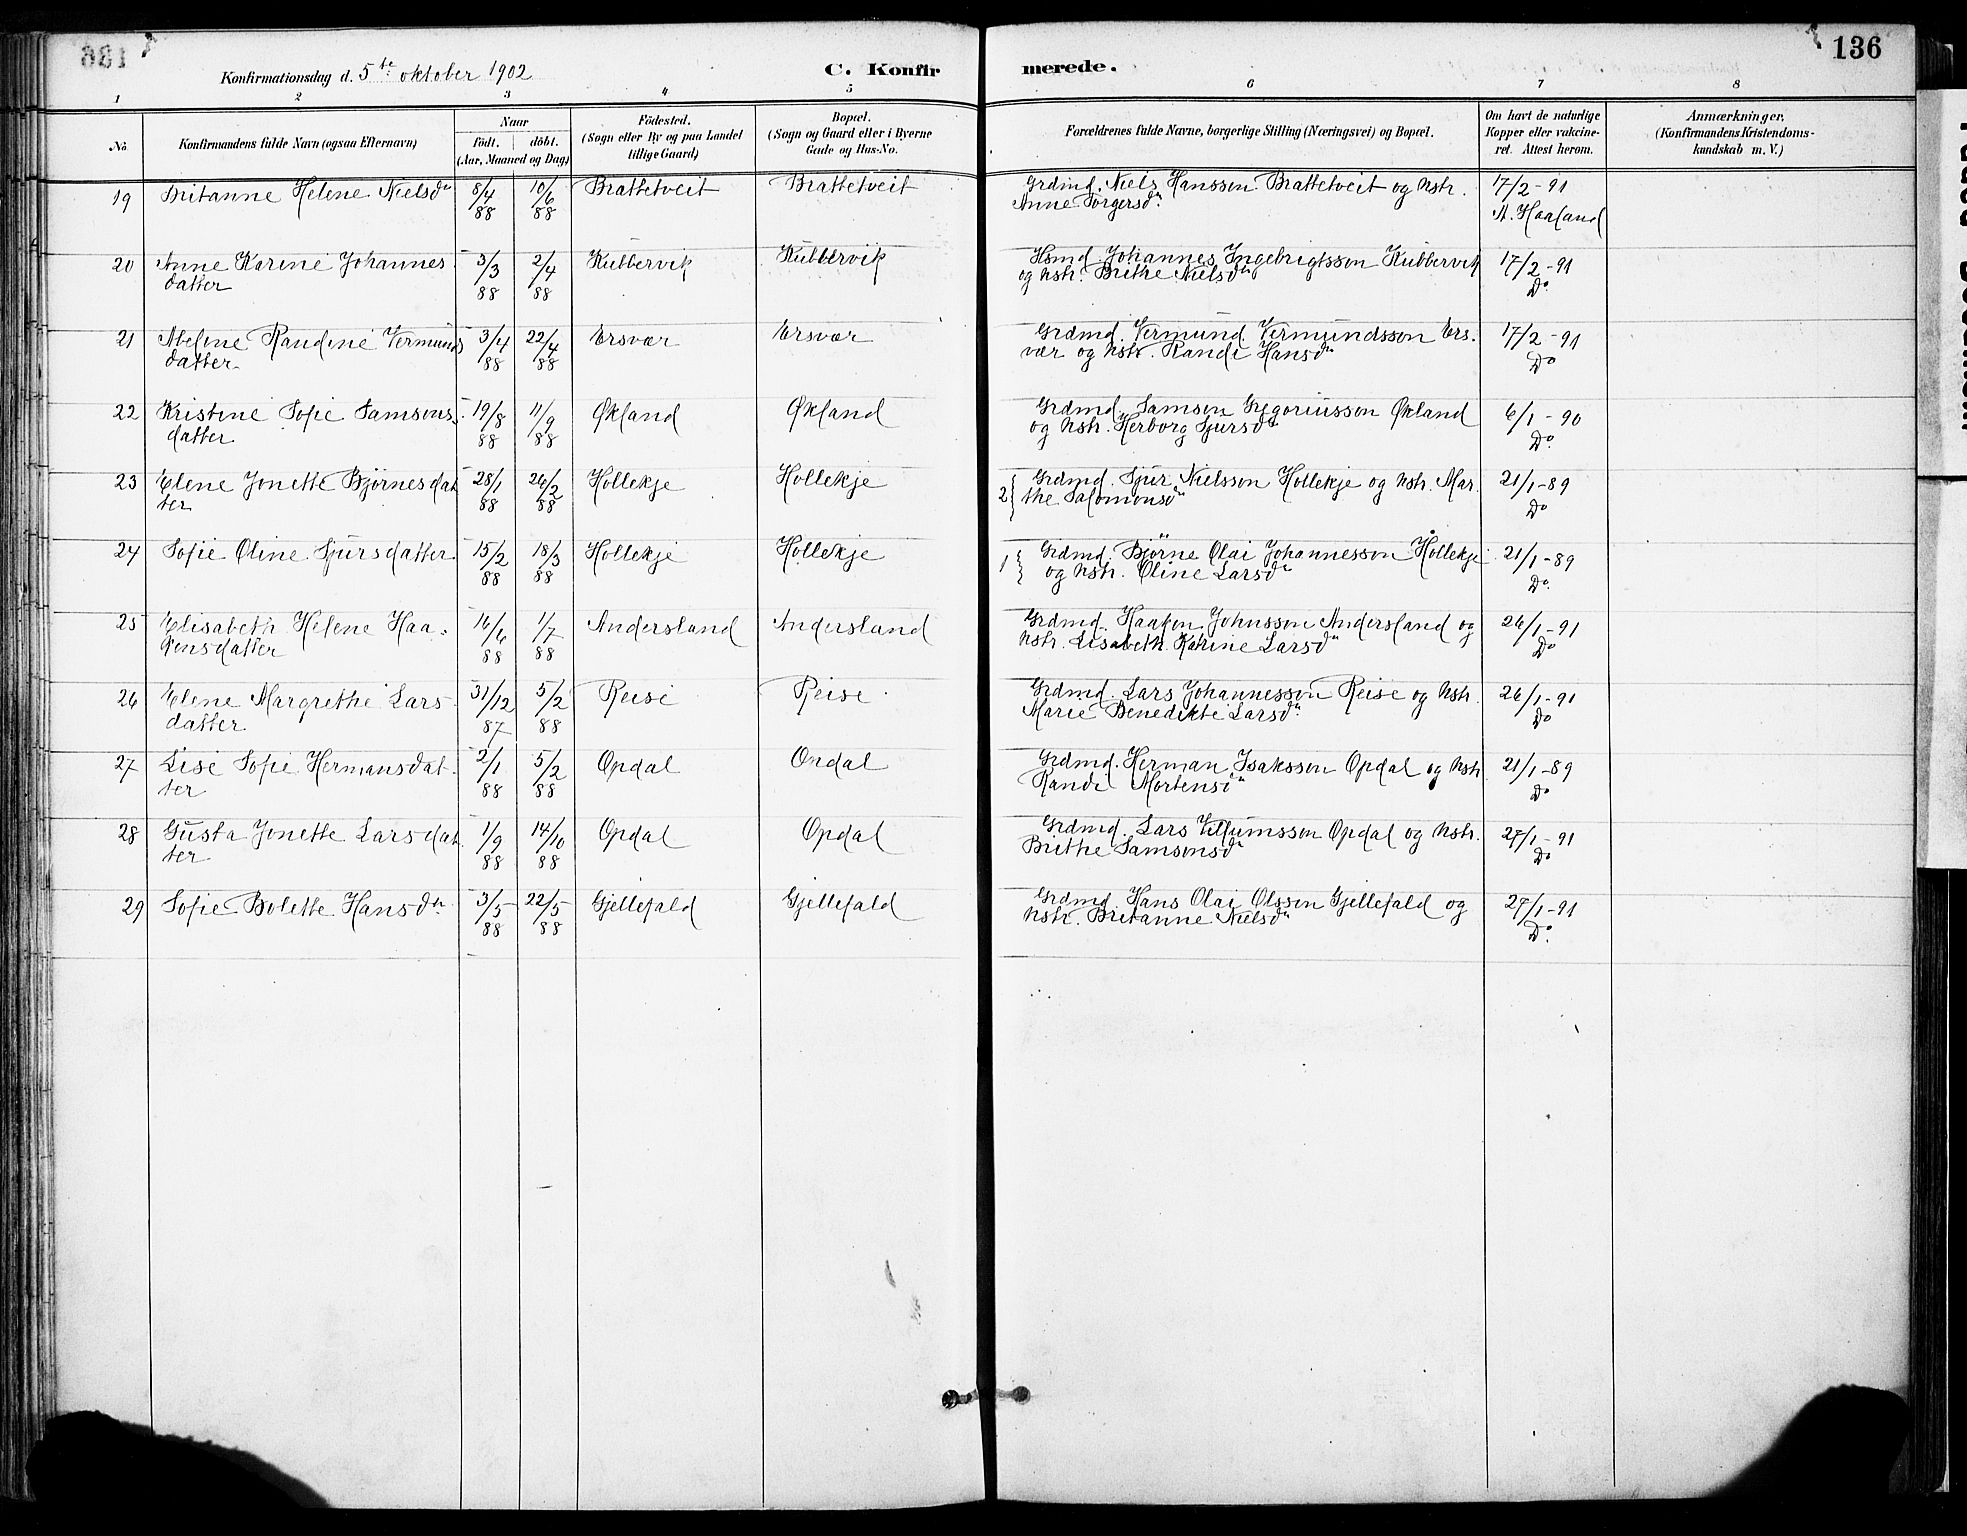 136
Konfirmationsdag d. 5te oktober 1902
C. Konfirmerede.
1 2 3 4 5 6 7 8
No.
Konfirmandens fulde Navn (ogsaa Efternavn)
Naar
födt. döbt.
(Aar, Maaned og Dag)
Födested.
(Sogn eller By og paa Landet
tillige Gaard)
Bopæl.
(Sogn og Gaard eller i Byerne
Gade og Hus-No.
Forældrenes fulde Navne, borgerlige Stilling (Næringsvei) og Bopæl.
Om havt de naturlige
Kopper eller vakcine-
ret. Attest herom.
Anmærkninger.
(Konfirmandens Kristendoms-
kundskab m. V.)
19 Britanne Helene Nielsdr 8/4 88 10/6 88 Brattetveit Brattetveit Grdmd. Niels Hanssen Brattetveit og Kstr. 17/2-91
Anne Torgersdr. A. Haaland
20 Anne Karine Johannes 3/3 88 2/4 88 Kubbervik Kubbervik Hsmd. Johannes Ingebrigtsson Kubbervik 17/2-91
datter og Kstr. Brithe Nielsdr Do.
21 Abeline Randine Vermunds 3/4 88 22/4 88 Ersvær Ersvær Grdmd. Vermund Vermundsson Ers- 17/2-91
datter vær og Kstr. Randi Hansdr Do
22 Kristine Sofie Samsons- 19/8 88 11/9 88 Økland Økland Grdmd. Samson Gregoriusson Økland 6/1-90
datter og Kstr. Herborg Sjursdr Do.
23 Elene Jonette Bjørnesdat 28/1 88 26/2 88 Hollekje Hollekje 2 { Grdmd. Sjur Nielsson Hollekje og Kstr. Mar- 21/1-89
ter the Salomonsdr Do
24 Sofie Oline Sjursdatter 15/2 88 18/3 88 Hollekje Hollekje 1 { Grdmd. Bjørne Olai Johannesson Hollekje 21/1-89
og Kstr. Oline Larsdr Do.
25 Elisabeth Helene Haa- 16/6 88 1/7 88 Andersland Andersland Grdmd. Haakon Johnsson Andersland og 26/1-91
konsdatter Kstr. Lisabeth Katrine Larsdr Do
26 Elene Margrethe Lars- 31/12 87 5/2 88 Reise Reise Grdmd. Lars Johannesson Reise og Kstr. 26/1-91
datter Marie Benedikte Larsdr. Do
27 Lise Sofie Hermansdat- 2/1 88 5/2 88 Opdal Opdal Grdmd. Herman Isaksson Opdal og Kstr 21/1-89
ter Randi Mortensdr Do
28 Gusta Jonette Larsdat 1/9 88 14/10 88 Opdal Opdal Grdmd. Lars Villumsson Opdal og Kstr. 27/1-91
ter Brithe Samsonsdr Do
29 Sofie Bolette Hansdr. 3/5 88 22/5 88 Gjellefald Gjellefald Grdmd. Hans Olai Olsson Gjellefald og 27/1-91
Kstr. Britanne Nielsdr Do.